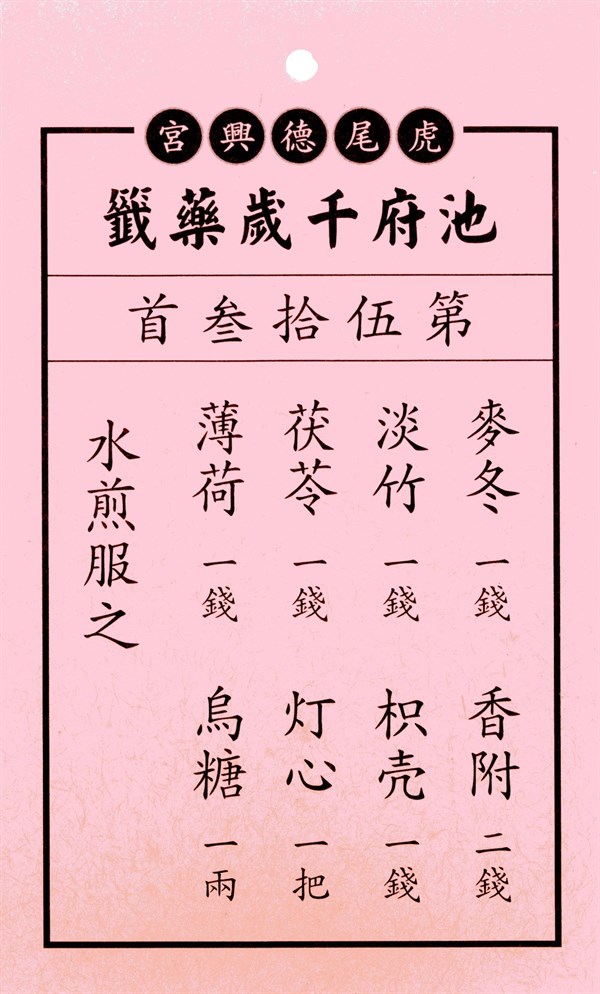 虎尾德興宮
池府千歲藥籤
第伍拾叁首
麥冬一錢 香附二錢
淡竹一錢 枳壳一錢
茯苓一錢 灯心一把
薄荷一錢 烏糖一兩
水煎服之